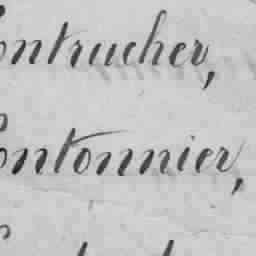 Entrucher,
Entonnier,